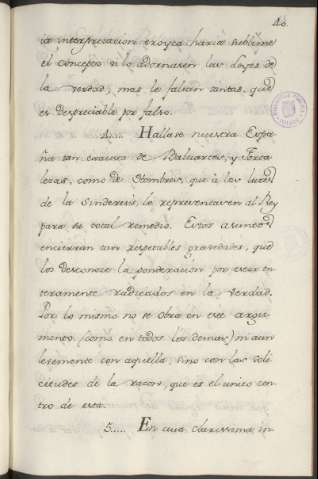 40.
ia interpretacion troyca haria sublime
el concepto si lo adornasen las luces de
la verdad, mas le faltan tantas, que
es despreciable por falso.
4.... Hallase nuestra Espa
ña tan escasa de Baluartes, y Forta
lezas, como de Hombres, que à las luces
de la Sinderesis, lo representasen al Rey
para su total remedio. Estos asuntos
encierran tan respetables gravedades, que
los desconoce la ponderacion por estar en
teramente radicados en la verdad.
Por lo mismo no se obra en este argu
mento, (como en todos los demas) ni aun
levemente con aquella, sino con las soli
citudes de la razon, que es el unico cen
tro de esta.
5..... En cuia clarissima in